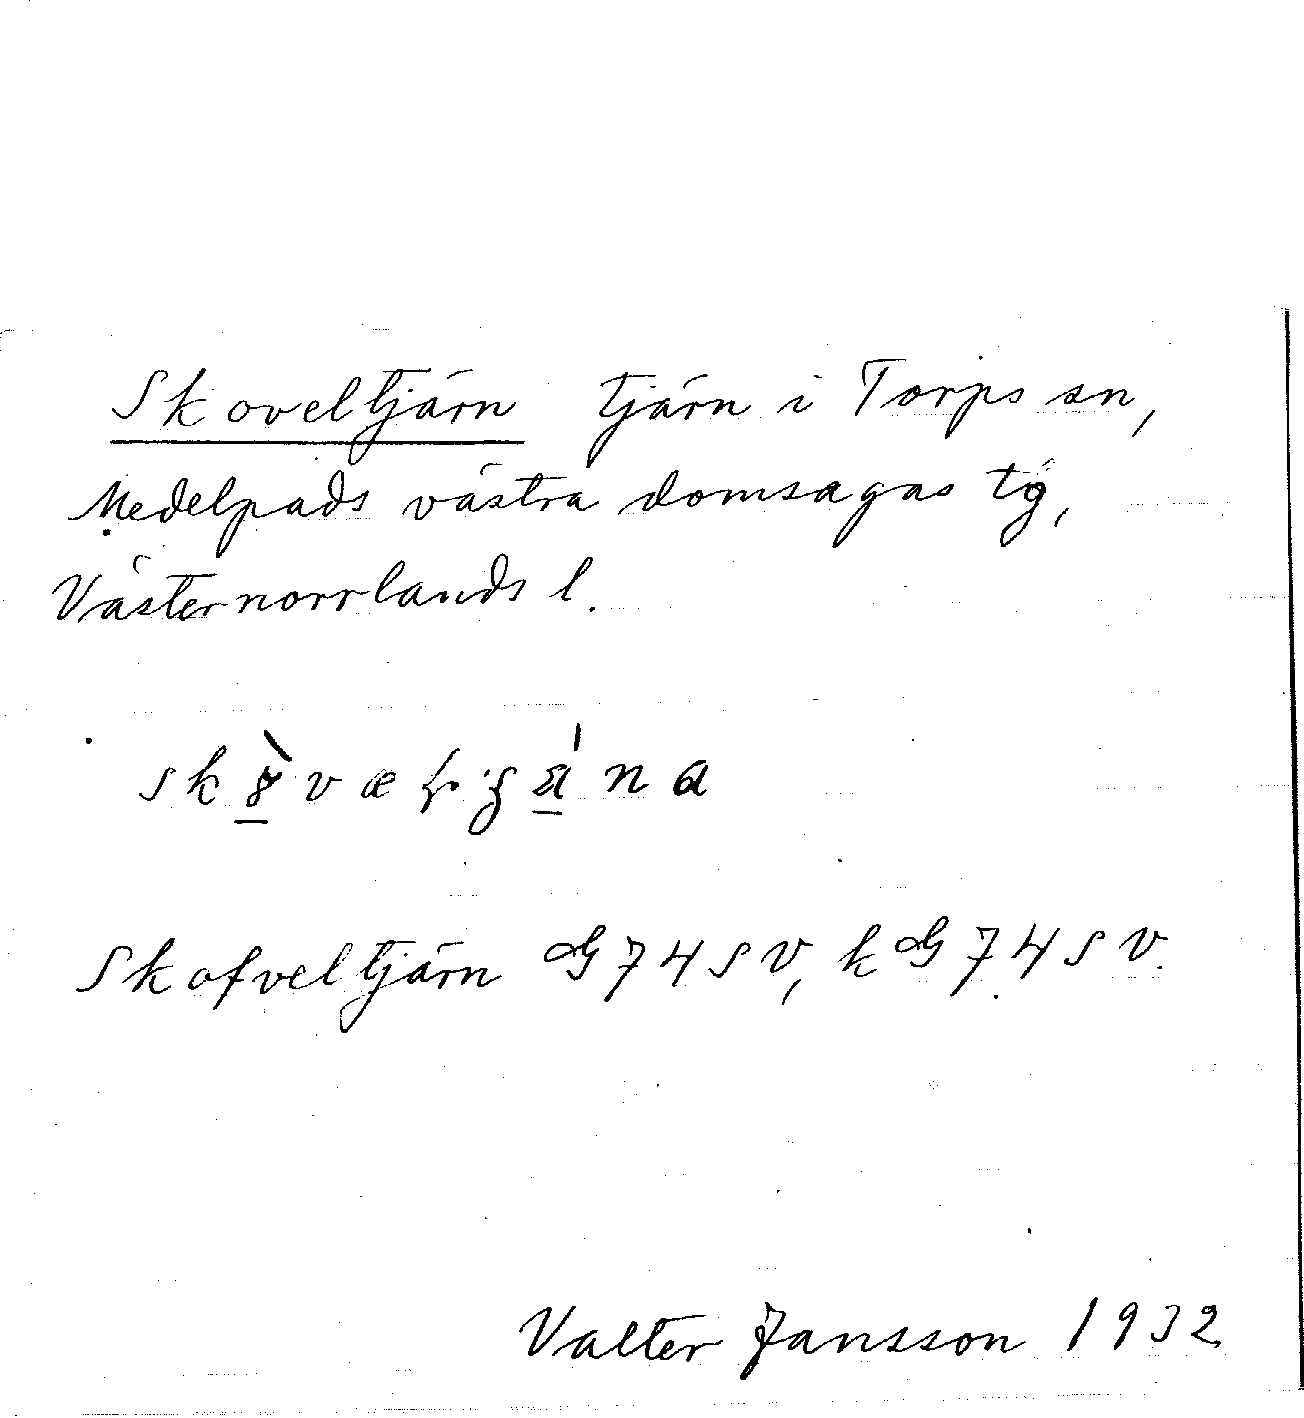 Skoveltjärn tjärn i Torps sn,
Medelpads västra domsagas tg,
Västernorrlands l.
Skofveltjärn G 74 SV, k G 74 SV.
Valter Jansson 1932